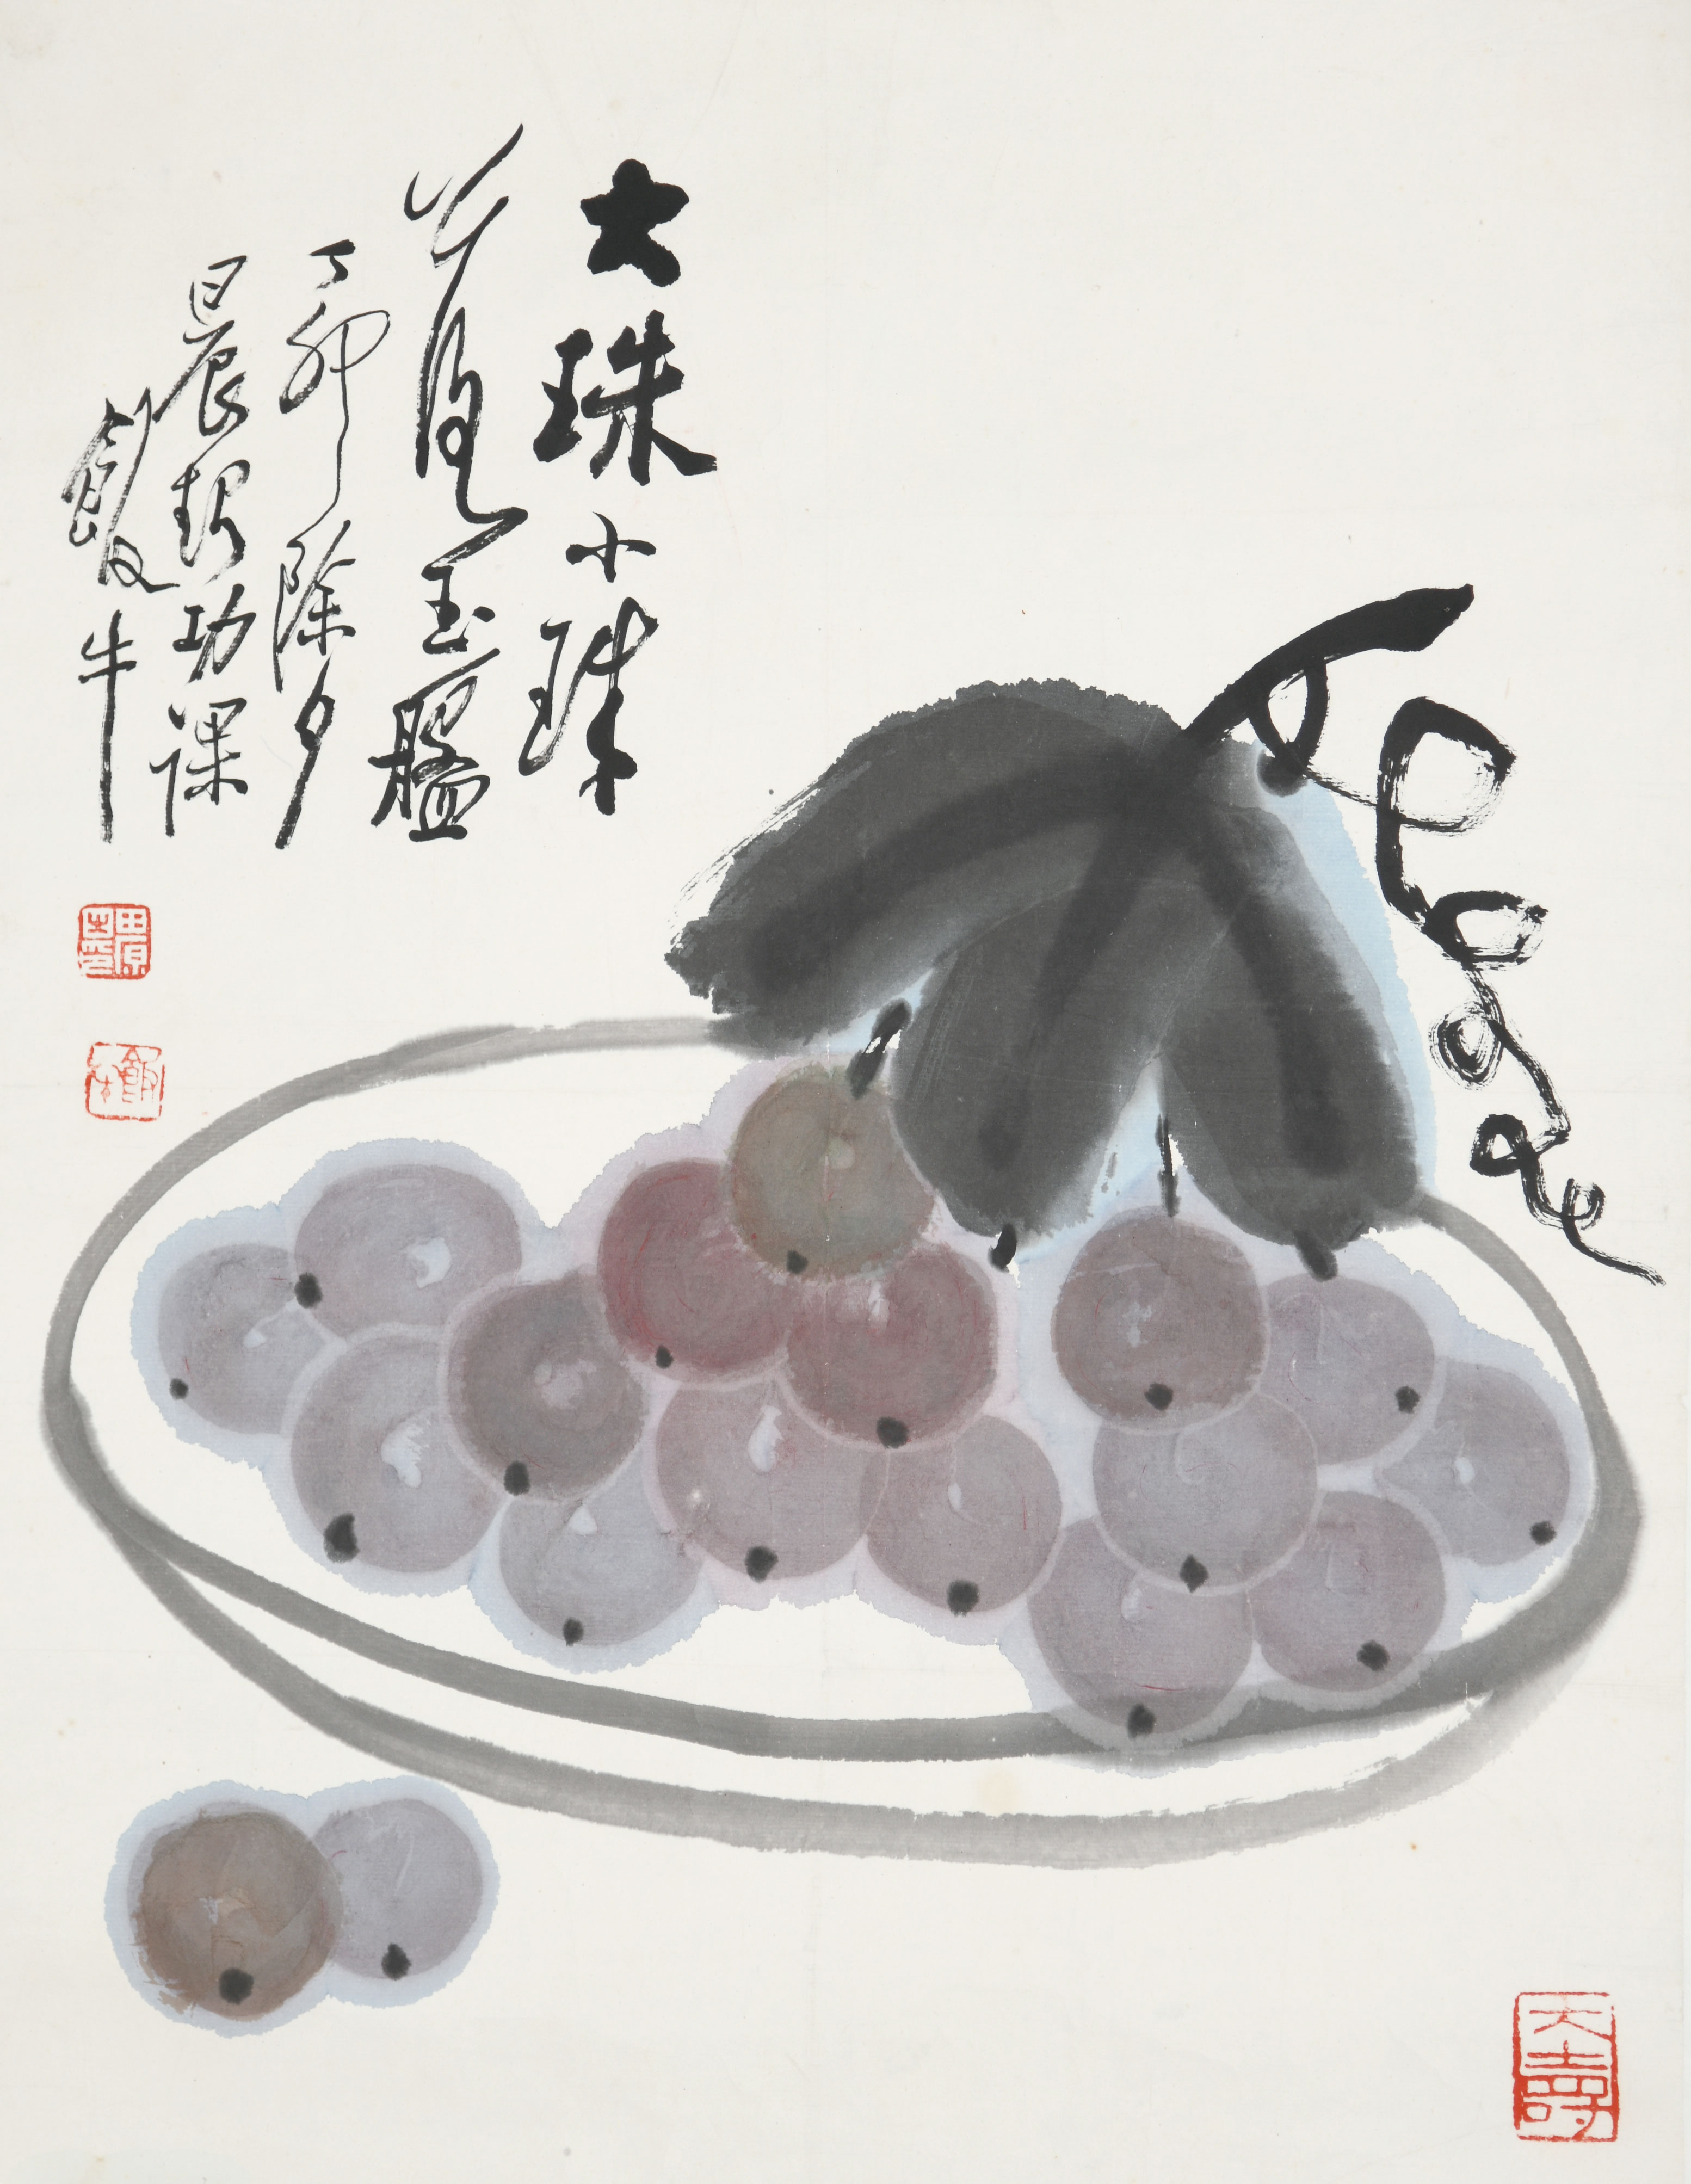 大珠小珠
落玉盤
丁卯除夕
日晨起功課
飯牛
田原之印
飯牛
天壽